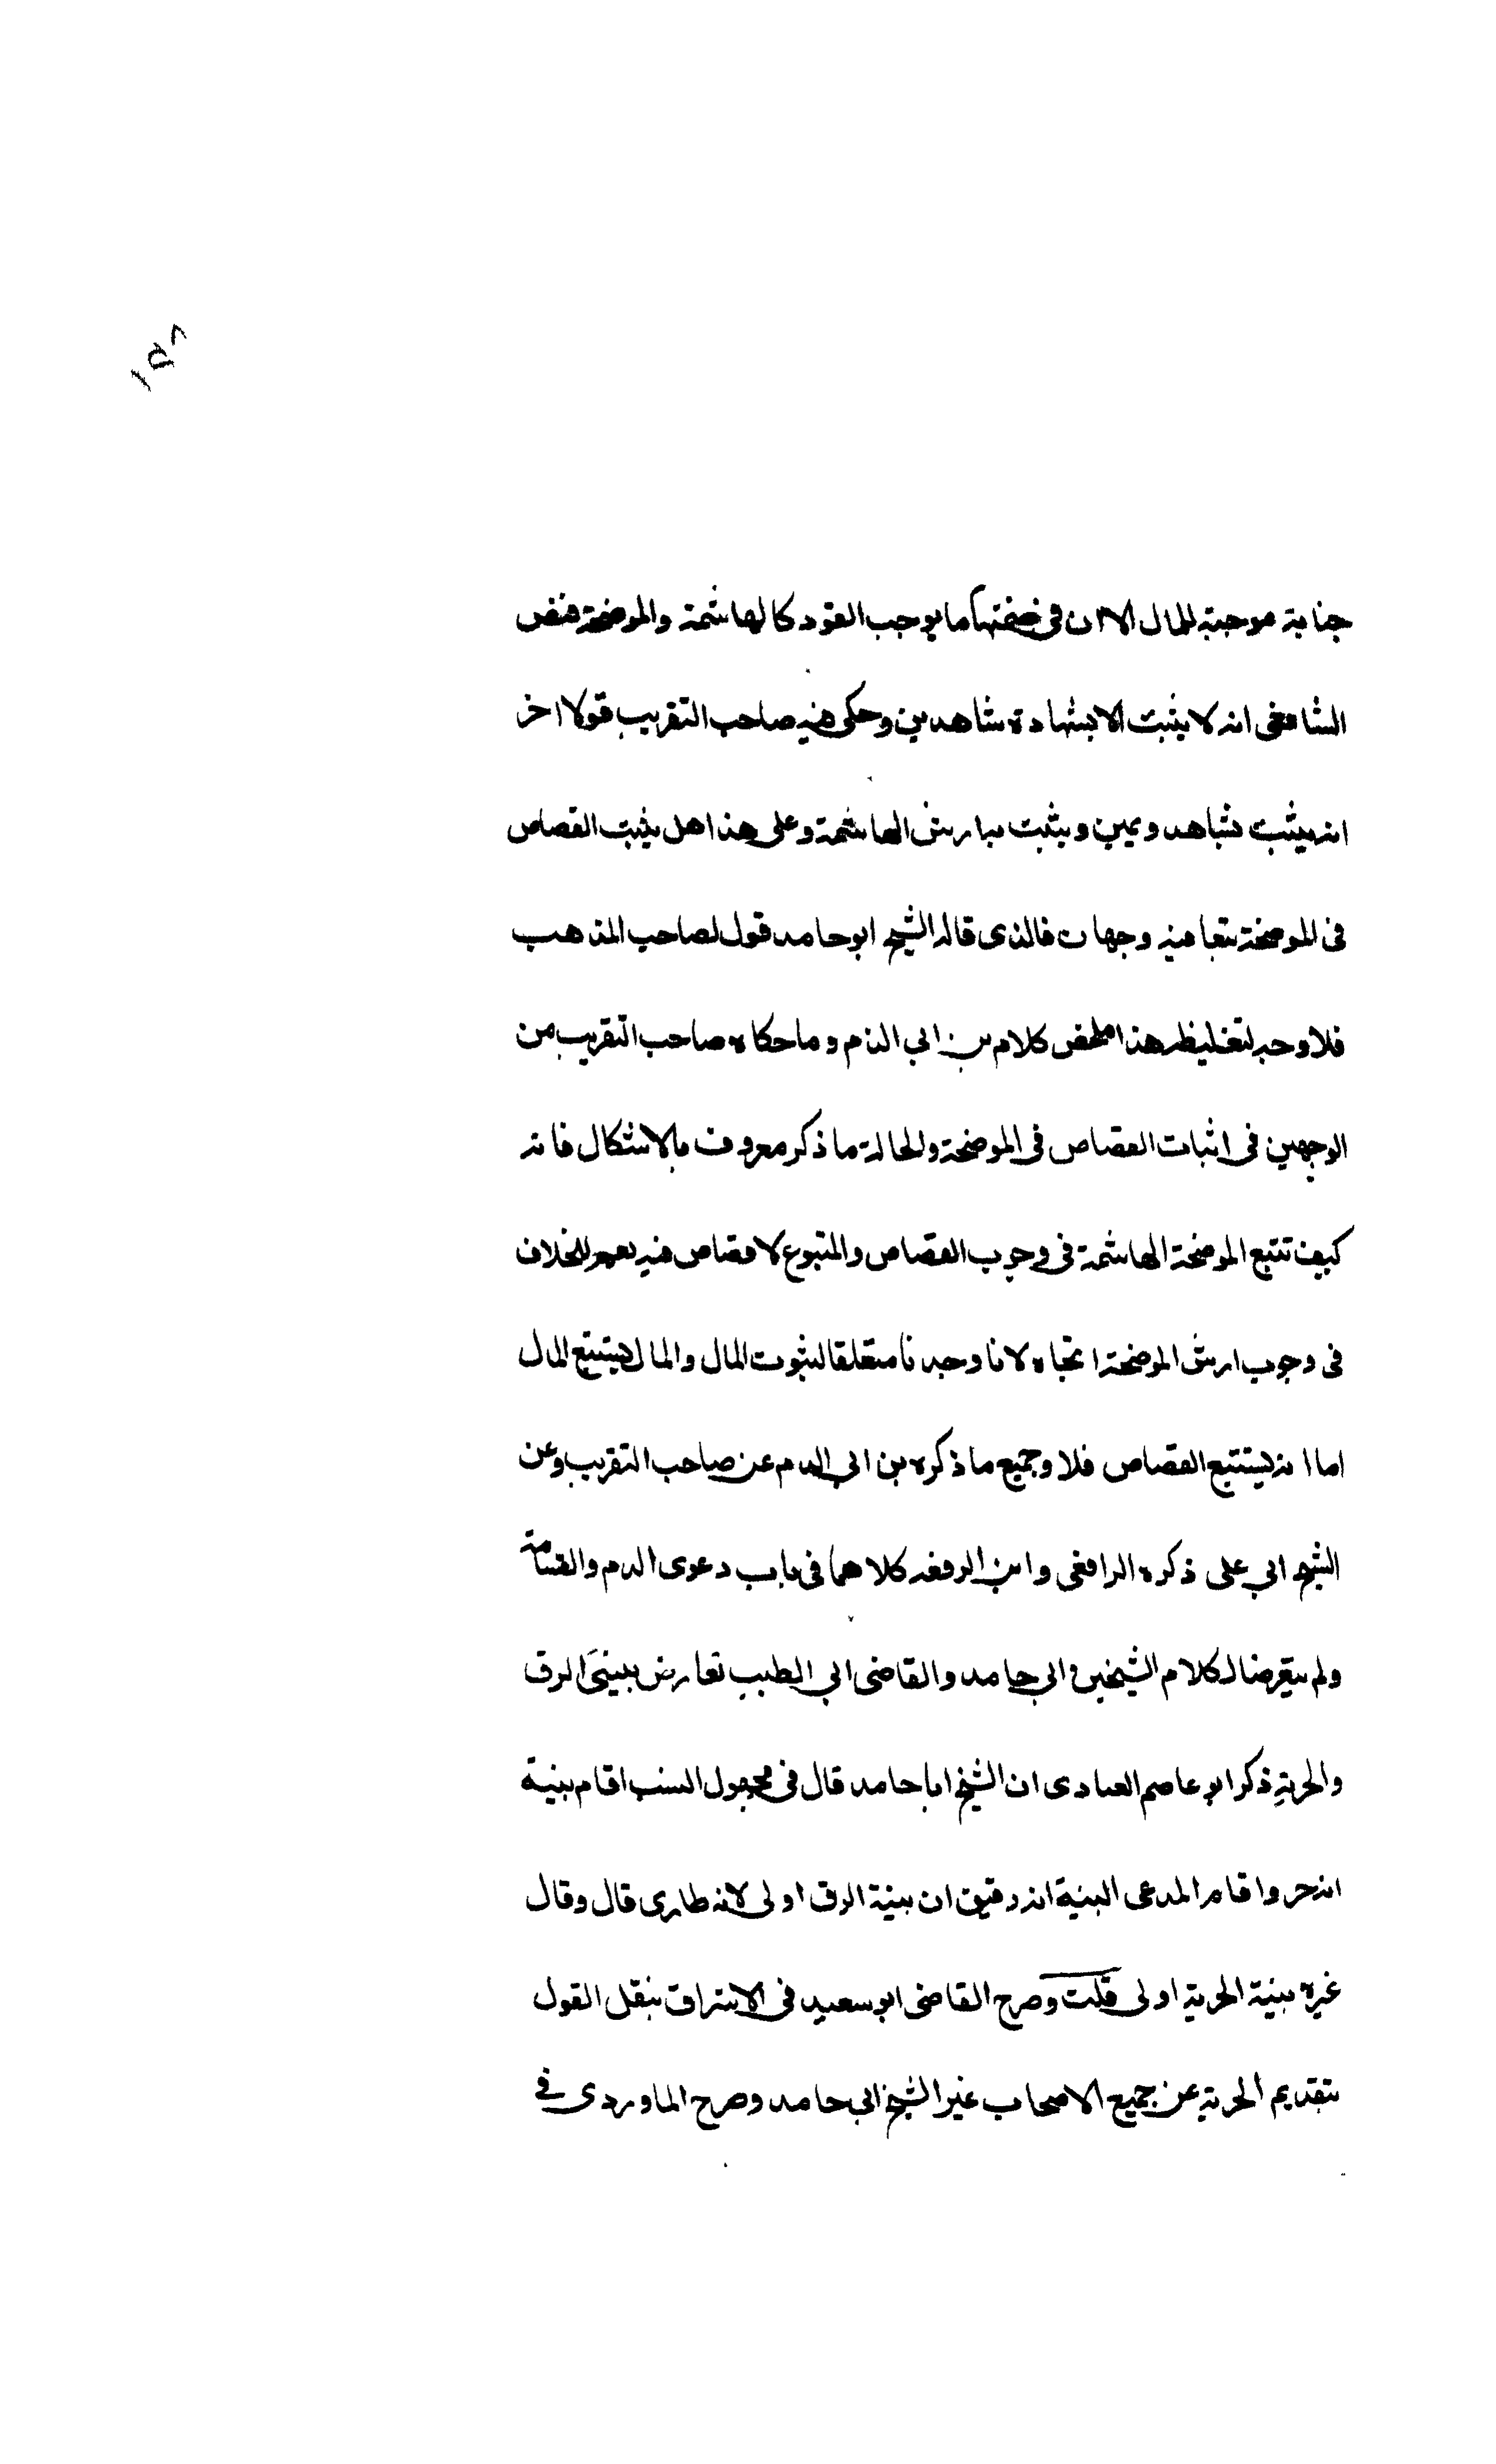 ١٥٨
جناية موجبة للمال الا ان فى ضمنها ما يوجب القود كالهاشمة والموضحة فنص
الشافعى انه لا يثبت الا بشهادة شاهدين وحكى فيه صاحب التقريب قولا اخر
انه يثبت بشاهد ويمين ويثبت بها ارش الهاشمة وعلى هذا هل يثبت القصاص
فى الموضحة تبعا فيه وجهان فالذى قاله الشيخ ابو حامد قول لصاحب المذهب
فلا وجه لتغليظه هذا ملخص كلام بن ابي الدم وما حكاه صاحب التقريب من
الوجهين فى اثبات القصاص فى الموضحة والحالة ما ذكر معروف بالاشكال فانه
كيف تتبع الموضحة الهاشمة فى وجوب القصاص والمتبوع لا قصاص فيه نعم للخلاف
فى وجوب ارش الموضحة اتجاه لانا وجدنا متعلقا لثبوت المال والمال يستتبع المال
اما انه يستتبع القصاص فلا وجميع ما ذكره بن ابي الدم عن صاحب التقريب وعن
الشيخ ابي على ذكره الرافعى وابن الرفعه كلاهما فى باب دعوى الدم والقسامة
ولم يتعرضا لكلام الشيخين ابي حامد والقاضى ابي الطيب تعارض بينتى الرق
والحرية ذكر ابو عاصم العبادى ان الشيخ ابا حامد قال فى مجهول النسب اقام بينة
انه حر واقام المدعى البينة انه رقيق ان بينة الرق اولى لانه طارى قال وقال
غيره بينة الحرية اولى قلت وصرح القاضى ابو سعيد فى الاشراف بنقل القول
بتقديم الحرية عن جميع الاصحاب غير الشيخ ابى حامد وصرح الماوردى في